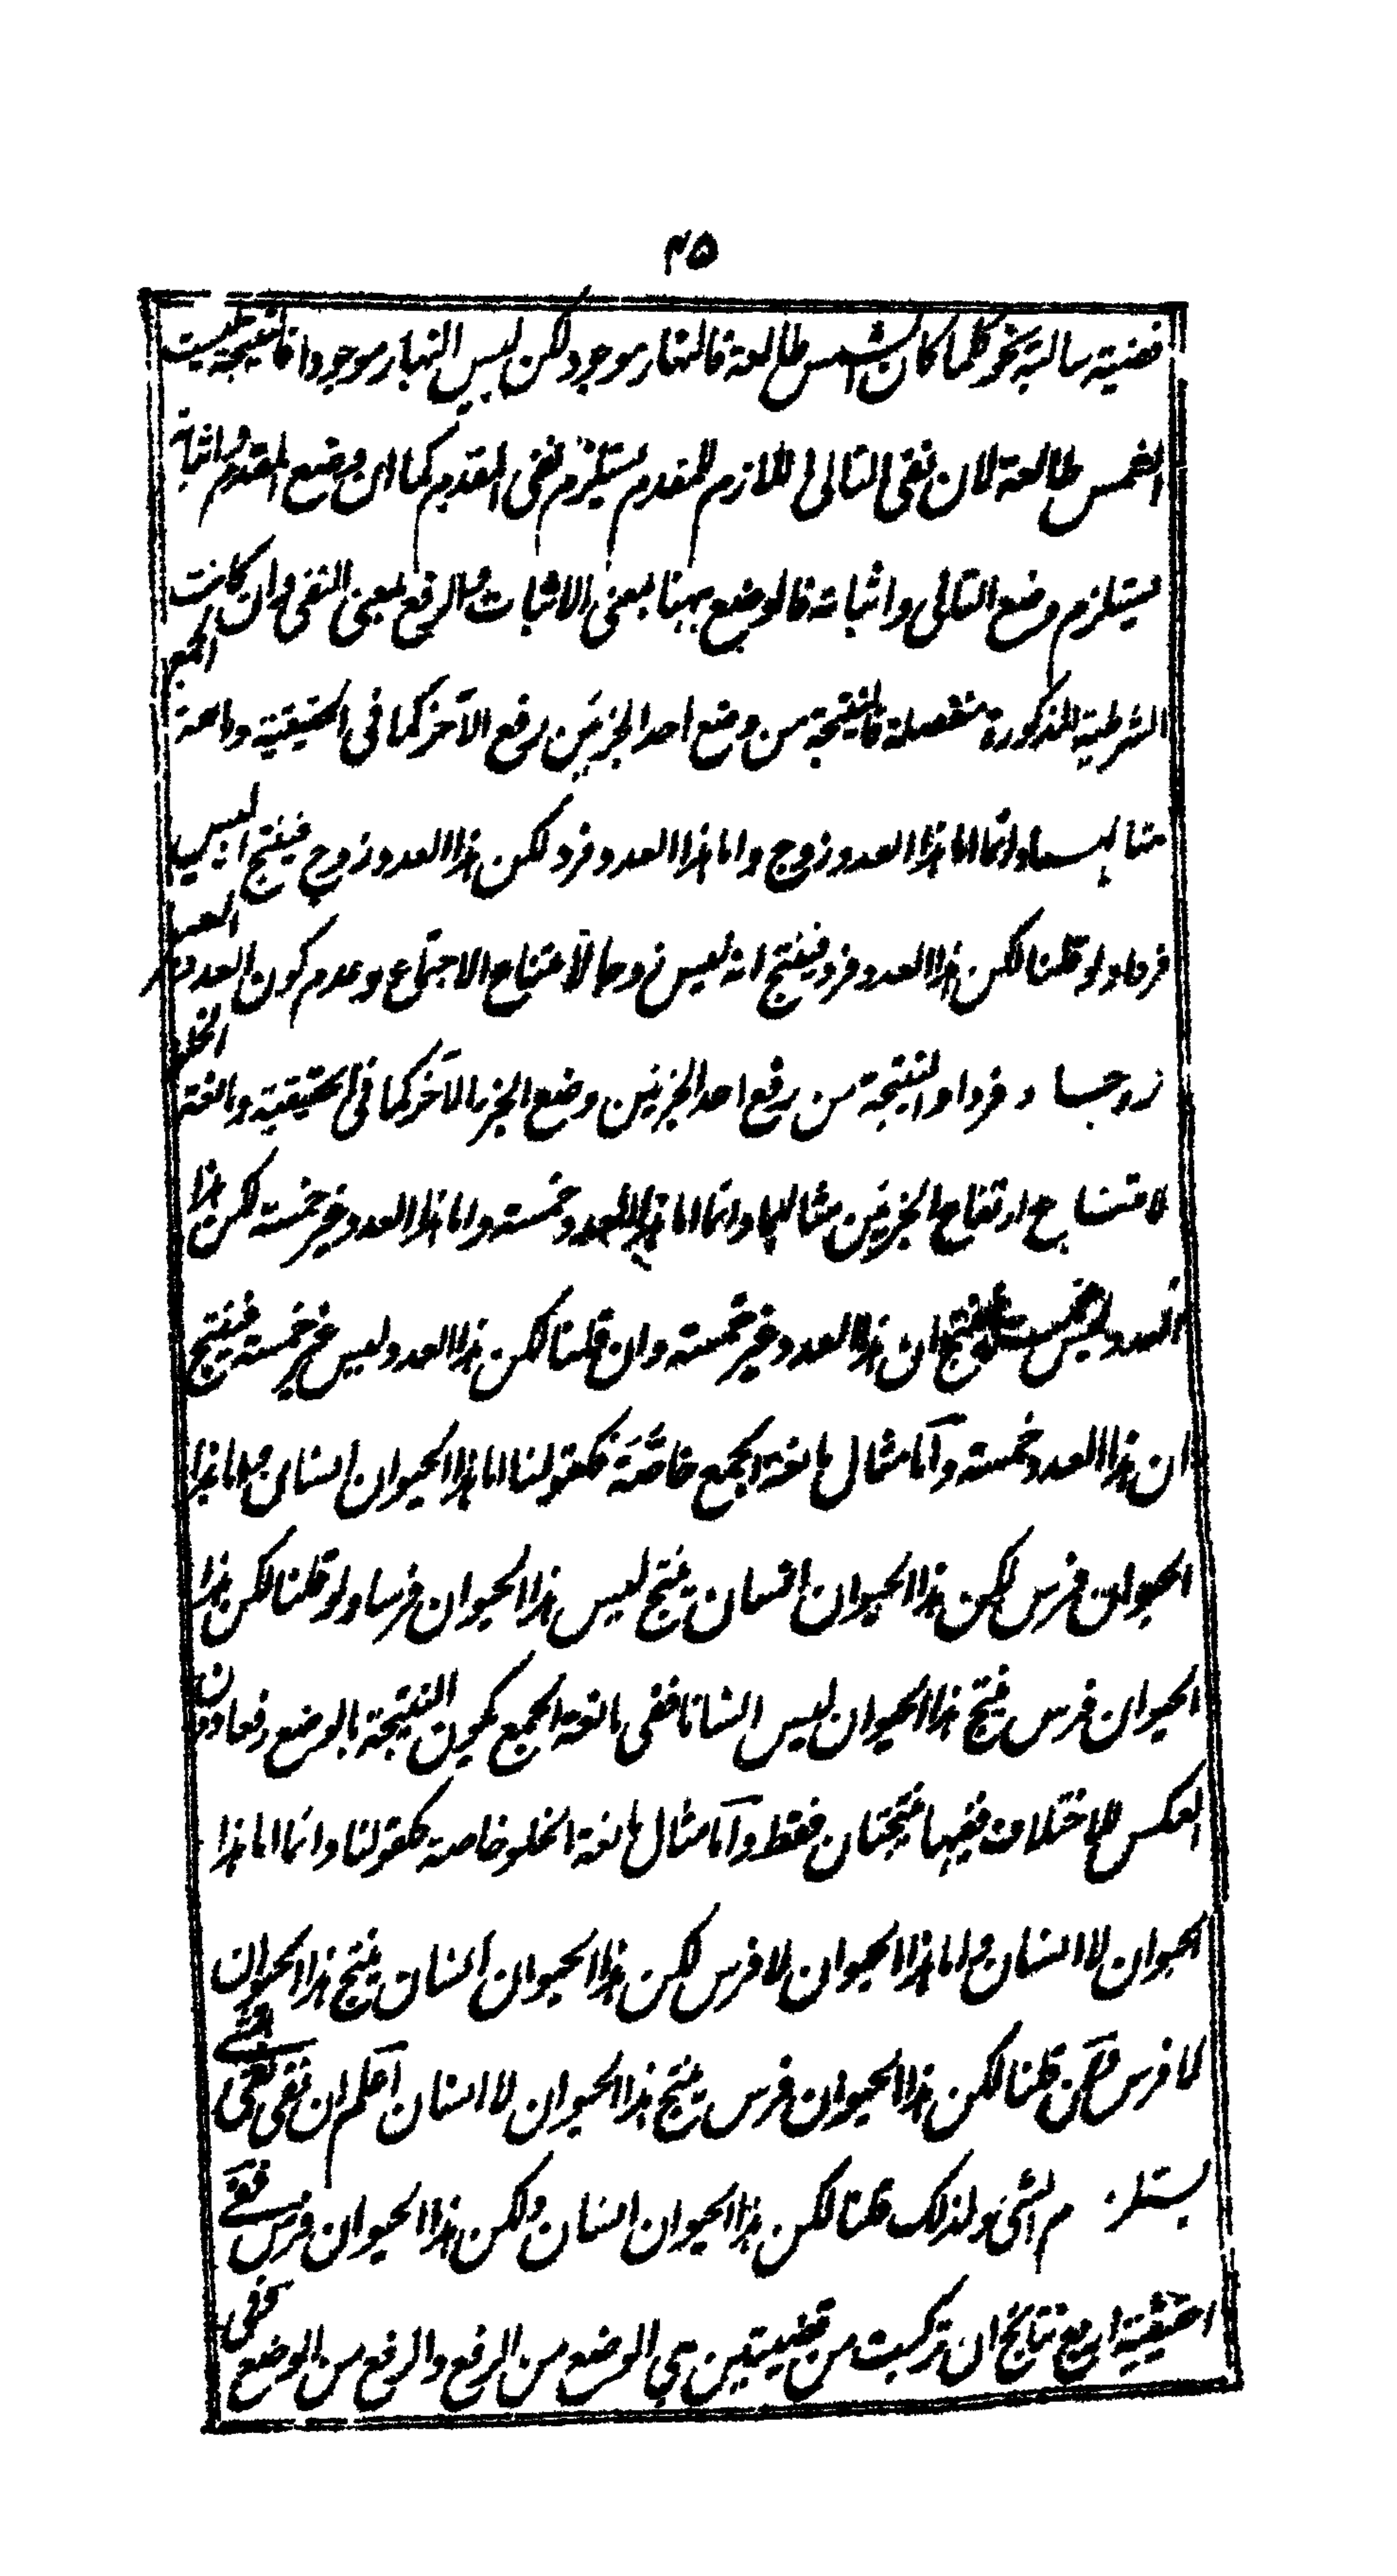 ٤٥
قضية سالبة نحو كلما كان الشمس طالعة فالنهار موجود لكن ليس النهار موجودا فالنتيجة ليست
الشمس طالعة لان نفى التالى اللازم للمقدم يستلزم نفى المقدم كما ان وضع المقدم واثباته
يستلزم وضع التالى واثباته فالوضع ههنا بمعنى الاثبات والرفع بمعنى النفى وان كانت
الشرطية المذكورة منفصلة فالنتيجة من وضع احد الجزئين رفع الآخر كما فى الحقيقية ومانعة الجمع
مثالهما دائما اما هذا العدد زوج واما هذا العدد فرد لكن هذا العدد زوج فينتج انه ليس
فردا ولو قلنا لكن هذا العدد فرد فينتج انه ليس زوجا لامتناع الاجتماع وعدم كون العدد
زوجا و فردا والنتيجة من رفع احد الجزئين وضع الجزء الآخر كما فى الحقيقية ومانعة الخلو
لامتناع ارتفاع الجزئين مثالهما دائما اما هذا العدد خمسة واما هذا العدد غير خمسة لكن هذا
العدد ليس خمسة فينتج ان هذا العدد غير خمسة وان قلنا لكن هذا العدد ليس غير خمسة فينتج
ان هذا العدد خمسة وأما مثال مانعة الجمع خاصّة فكقولنا اما هذا الحيوان انسان واما هذا
الحيوان فرس لكن هذا الحيوان انسان ينتج ليس هذا الحيوان فرسا ولو قلنا لكن هذا
الحيوان فرس ينتج هذا الحيوان ليس انسانا ففى مانعة الجمع يكون النتيجة بالوضع رفعا دون
العكس للاختلاف ففيها نتيجتان فقط وأما مثال مانعة الخلو خاصة كقولنا دائما اما هذا
الحيوان لا انسان واما هذا الحيوان لا فرس لكن هذا الحيوان انسان ينتج هذا الحيوان
لا فرس ولئن قلنا لكن هذا الحيوان فرس ينتج هذا الحيوان لا انسان اعلم ان نفى نفى الشئ
يستلزم الشئ ولذلك قلنا لكن هذا الحيوان انسان ولكن هذا الحيوان فرس ففى
الحقيقية اربع نتائج ان تركبت من قضيتين هى الوضع من الرفع والرفع من الوضع ففى